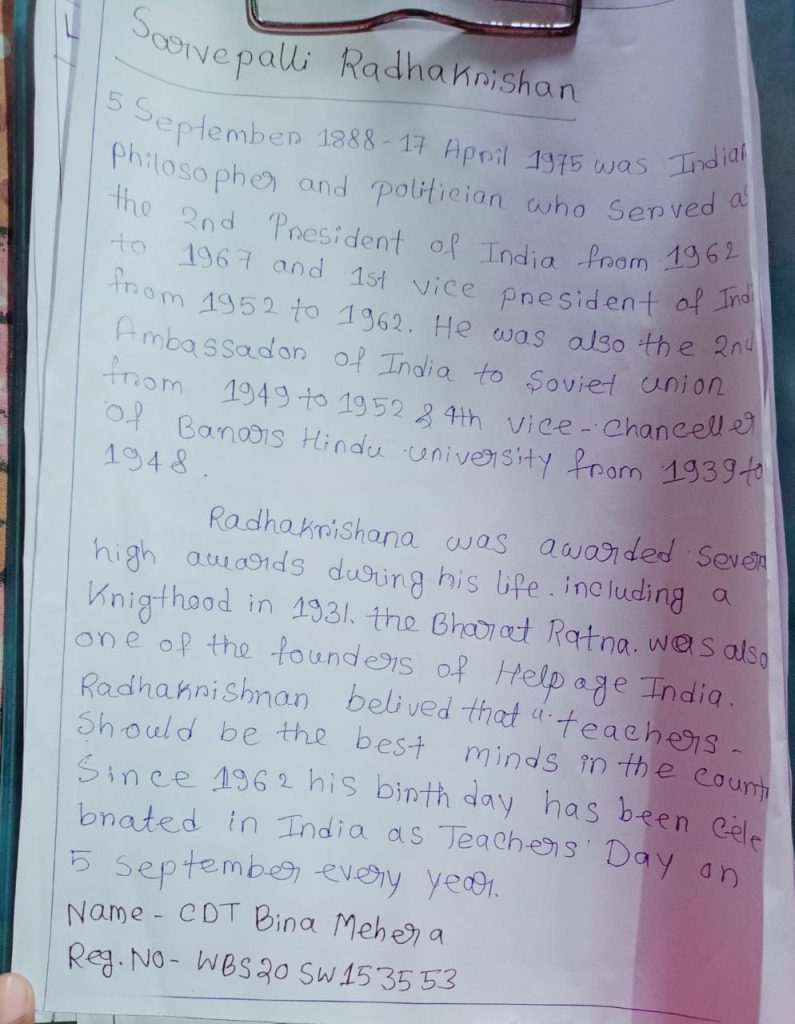 Sarvepalli Radhakrishan
5 September 1888-17 April 1975 was Indian
philosopher and politician who served as
the 2nd President of India from 1962
to 1967 and 1st vice president of Indi
from 1952 to 1962. He was also the 2nd
Ambassador of India to Soviet union
from 1949 to 1952 & 4th vice-chanceller
of Banars Hindu university from 1939 to
1948.
Radhakrishana was awarded seven
high awards during his life. including a
Knigthood in 1931. the Bharat Ratna. was also
one of the founders of Helpage India.
Radhakrishnan belived that "teachers-
Should be the best minds in the countr
Since 1962 his birth day has been Cele
brated in India as Teachers' Day on
5 September every year.
Name - CDT Bina Mehera
Reg. No- WBS20SW153553